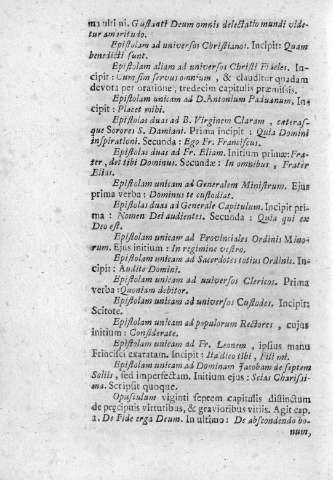 multi ni. Gustanti Deum omnis delectatio mundi vide-
tur amaritudo.
Epistolam ad universos Christianos. Incipit: Quam
benedicti sunt.
Epistolam aliam ad universos Christi Fideles. In-
cipit: Cum sim servus omnium, & clauditur quadam
devota per oratione, tredecim capitulis præmissis.
Epistolam unicam ad D. Antonium Paduanum. In-
cipit: Placet mihi.
Epistolas duas ad B. Virginem Claram, ceteras-
que Sorores S. Damiani. Prima incipit: Quia Domini
inspirationi. Secunda: Ego Fr. Franciscus.
Epistolas duas ad Fr. Eliam. Initium primæ: Fra-
ter, det tibi Dominus. Secundæ: In omnibus, Frater
Elias.
Epistolam unicam ad Generalem Ministrum. Ejus
prima verba: Dominus te custodiat.
Epistolas duas ad Generale Capitulum. Incipit pri-
ma: Nomen Dei audientes. Secunda: Quia qui ex
Deo est.
Epistolam unicam ad Provinciales Ordinis Mino-
rum. Ejus initium: In regimine vestro.
Epistolam unicam ad Sacerdotes totius Ordinis. In-
cipit: Audite Domini.
Epistolam unicam ad universos Clericos. Prima
verba: Quoniam debitor.
Epistolam unicam ad universos Custodes. Incipit:
Scitote.
Epistolam unicam ad populorum Rectores, cujus
initium: Considerate.
Epistolam unicam ad Fr. Leonem, ipsius manu
Francisci exaratam. Incipit: Ita dico tibi, Fili mi.
Epistolam unicam ad Dominam Jacobam de septem
Soliis, sed imperfectam. Initium ejus: Scias Charissi-
ma. Scripsit quoque.
Opusculum viginti septem capitulis distinctum
de præcipuis virtutibus, & gravioribus vitiis. Agit cap.
1. De Fide erga Deum. In ultimo: De abscondendo bo-
num,